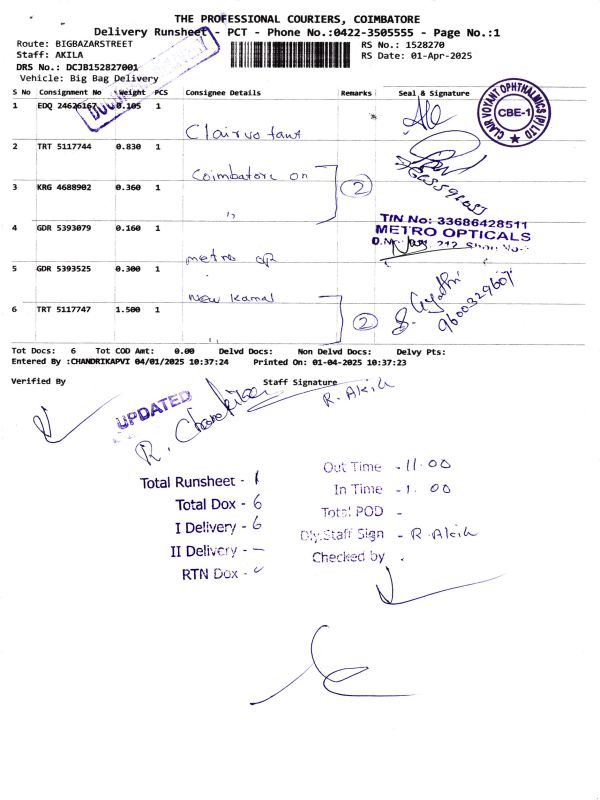 THE PROFESSIONAL COURIERS, COIMBATORE
Delivery Runsheet - PCT - Phone No.:0422-3505555 - Page No.:1
Route: BIGBAZARSTREET RS No.: 1528270
Staff: AKILA RS Date: 01-Apr-2025
DRS No.: DCJB152827001
Vehicle: Big Bag Delivery
S No Consignment No Weight PCS Consignee Details Remarks Seal & Signature
1 EDQ 24626167 0.105 1
CLAIR VOYANT OPHTHALMICS (P) LTD
CBE-1
2 TRT 5117744 0.830 1
Coimbatore on
3 KRG 4688902 0.360 1 2
"
TIN No: 33686428511
4 GDR 5393079 0.160 1 METRO OPTICALS
metro op
5 GDR 5393525 0.300 1
New Kamal
9600329607
6 TRT 5117747 1.500 1 2
"
Tot Docs: 6 Tot COD Amt: 0.00 Delvd Docs: Non Delvd Docs: Delvy Pts:
Entered By :CHANDRIKAPVI 04/01/2025 10:37:24 Printed On: 01-04-2025 10:37:23
Verified By Staff Signature
UPDATED R. Akila
Total Runsheet - 1 Out Time - 11.00
Total Dox - 6 In Time - 1.00
I Delivery - 6 Total POD -
II Delivery - - Dly.Staff Sign - R. Akila
RTN Dox - Checked by